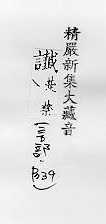 精嚴新集大藏音
讖、楚禁(言部, P39)